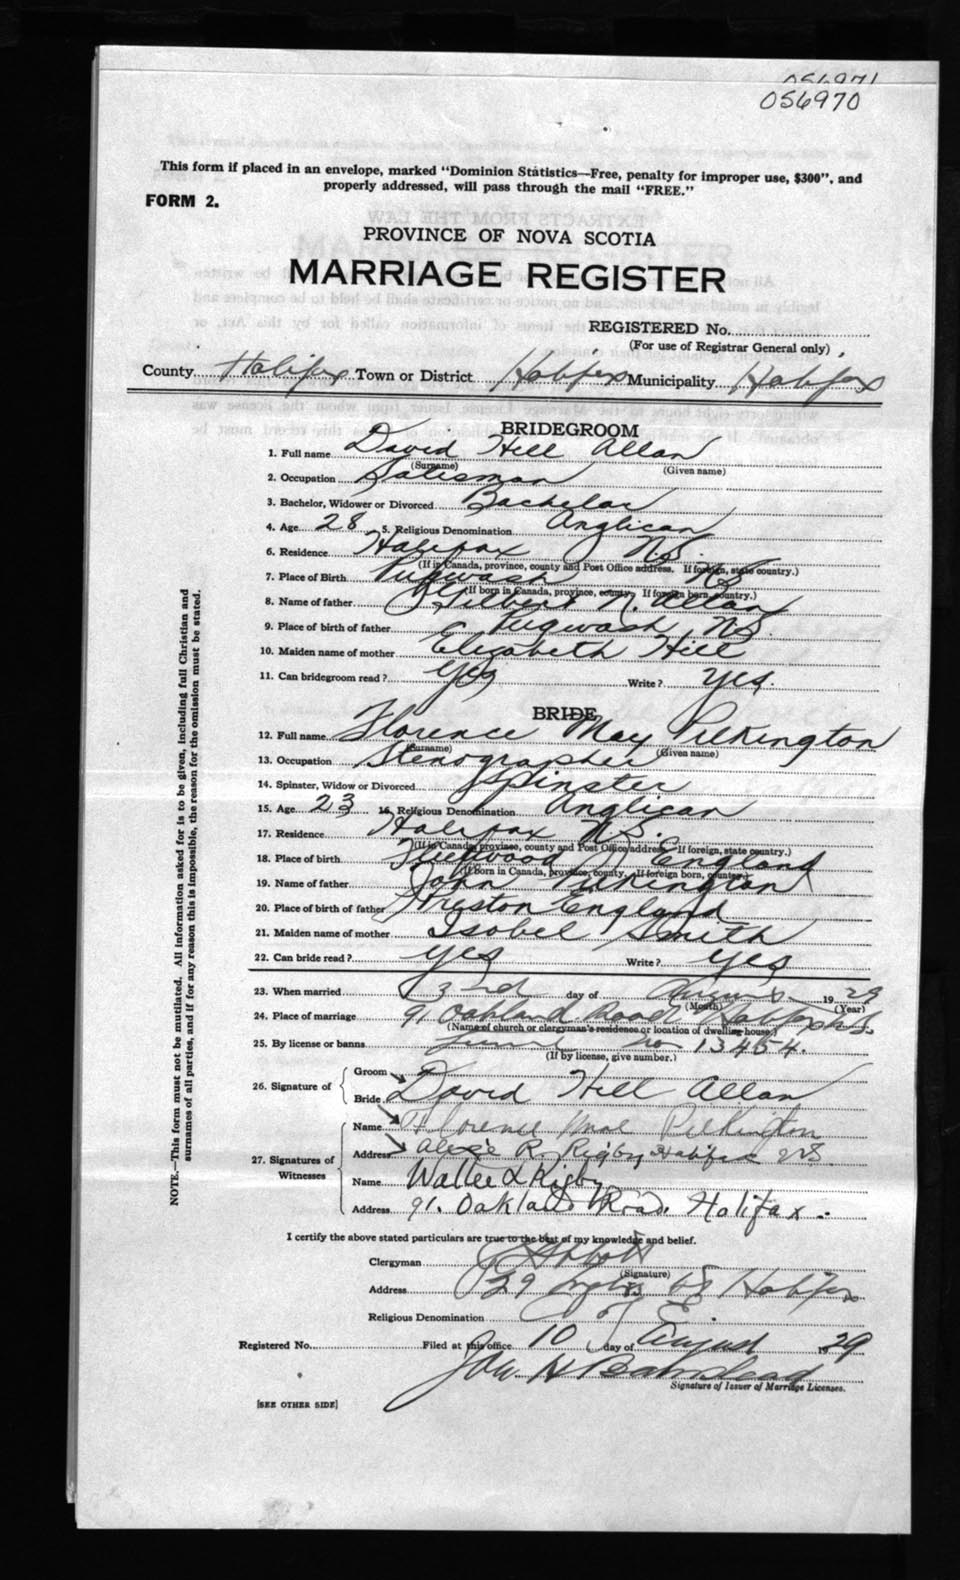 056971
056970
This form if placed in an envelope, marked "Dominion Statistics—Free, penalty for improper use, $300", and
properly addressed, will pass through the mail "FREE."
FORM 2.
PROVINCE OF NOVA SCOTIA
MARRIAGE REGISTER
REGISTERED No.
(For use of Registrar General only)
County Halifax Town or District Halifax Municipality Halifax
BRIDEGROOM
1. Full name David Hill Allan
(Surname) (Given name)
2. Occupation Salesman
3. Bachelor, Widower or Divorced Bachelor
4. Age 28 5. Religious Denomination Anglican
6. Residence Halifax N.S.
(If in Canada, province, county and Post Office address. If foreign, state country.)
7. Place of Birth Pugwash N.S.
(If born in Canada, province, county. If foreign born, country.)
8. Name of father Gilbert N. Allan
9. Place of birth of father Pugwash N.S.
10. Maiden name of mother Elizabeth Hill
11. Can bridegroom read? Yes Write? Yes.
BRIDE
12. Full name Florence May Pilkington
(Surname) (Given name)
13. Occupation Stenographer
14. Spinster, Widow or Divorced Spinster
15. Age 23 16. Religious Denomination Anglican
17. Residence Halifax N.S.
(If in Canada, province, county and Post Office address. If foreign, state country.)
18. Place of birth England
(If born in Canada, province, county. If foreign born, country.)
19. Name of father John Pilkington
20. Place of birth of father Preston England
21. Maiden name of mother Isobel Smith
22. Can bride read? Yes Write? Yes
23. When married 3rd day of August 1929
(Month) (Year)
24. Place of marriage 91 Oakland Road Halifax N.S.
(Name of church or clergyman's residence or location of dwelling house.)
25. By license or banns No 13454.
(If by license, give number.)
26. Signature of Groom David Hill Allan
Bride
27. Signatures of Witnesses Name Florence Mae Pilkington
Address Alexie R. Rigby Halifax N.S.
Name Walter L Rigby
Address 91. Oakland Road. Halifax.
I certify the above stated particulars are true to the best of my knowledge and belief.
Clergyman Abbott
(Signature)
Address 29 Halifax
Religious Denomination C of E.
Registered No. Filed at this office 10 day of August 1929
H
Signature of Issuer of Marriage Licenses.
[SEE OTHER SIDE]
NOTE.—This form must not be mutilated. All information asked for is to be given, including full Christian and
surnames of all parties, and if for any reason this is impossible, the reason for the omission must be stated.